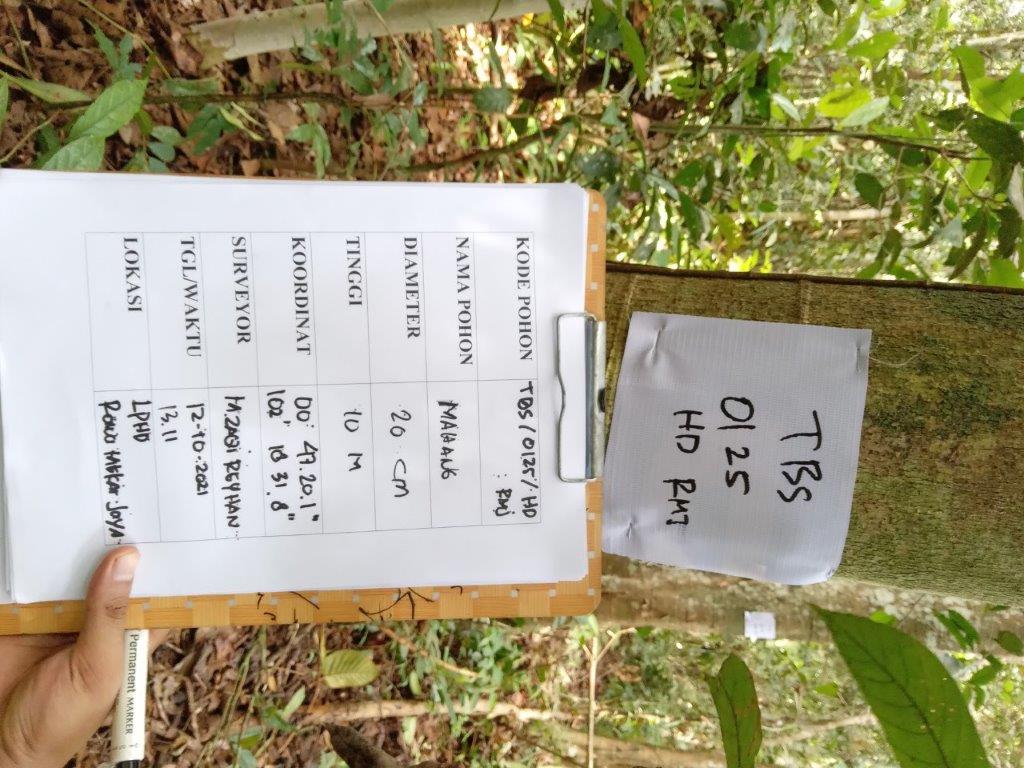 TBS
0125
HD RMJ
KODE POHON TBS / 0125 / HD
: RMJ
NAMA POHON MAHANG
DIAMETER 20 CM
TINGGI 10 M
KOORDINAT 00° 47.20.1"
102° 18 31.8"
SURVEYOR M.ZAQI REYHAN
TGL/WAKTU 12-10-2021
13.11
LOKASI LPHD
ROWO MEKAR JAYA
Permanent MARKER